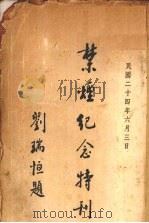 民國二十四年六月三日
禁煙紀念特刊
劉瑞恒題